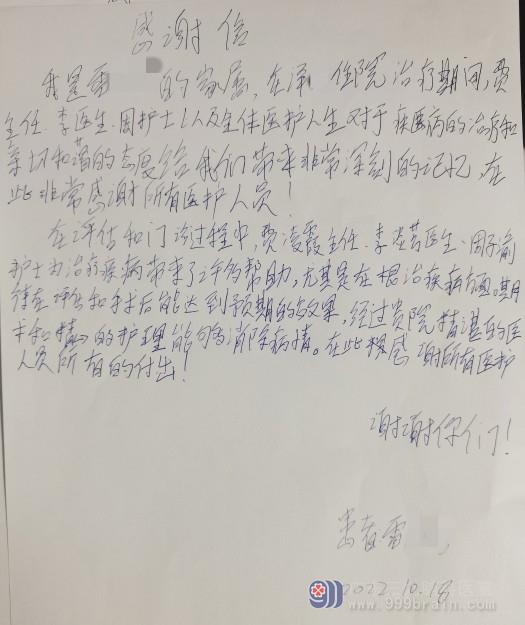 感谢信
我是雷 的家属,在泽 住院治疗期间,费
主任.李医生.周护士以及全体医护人生对于疾医病的治疗和
亲切和蔼的态度给我们带来非常深刻的记忆,在
此非常感谢所有医护人员!
在评估和门诊过程中,费凌霞主任.李 医生、周子俞
护士为治疗疾病带来了许多帮助,尤其是在根治疾病方面。期
待在 和手术后能达到预期的效果,经过贵院精湛的医
术和精心的护理能够消除病情。在此想感谢所有医护
人员所有的付出!
谢谢你们!
患者:雷
2022.10.18
999
www.999brain.com